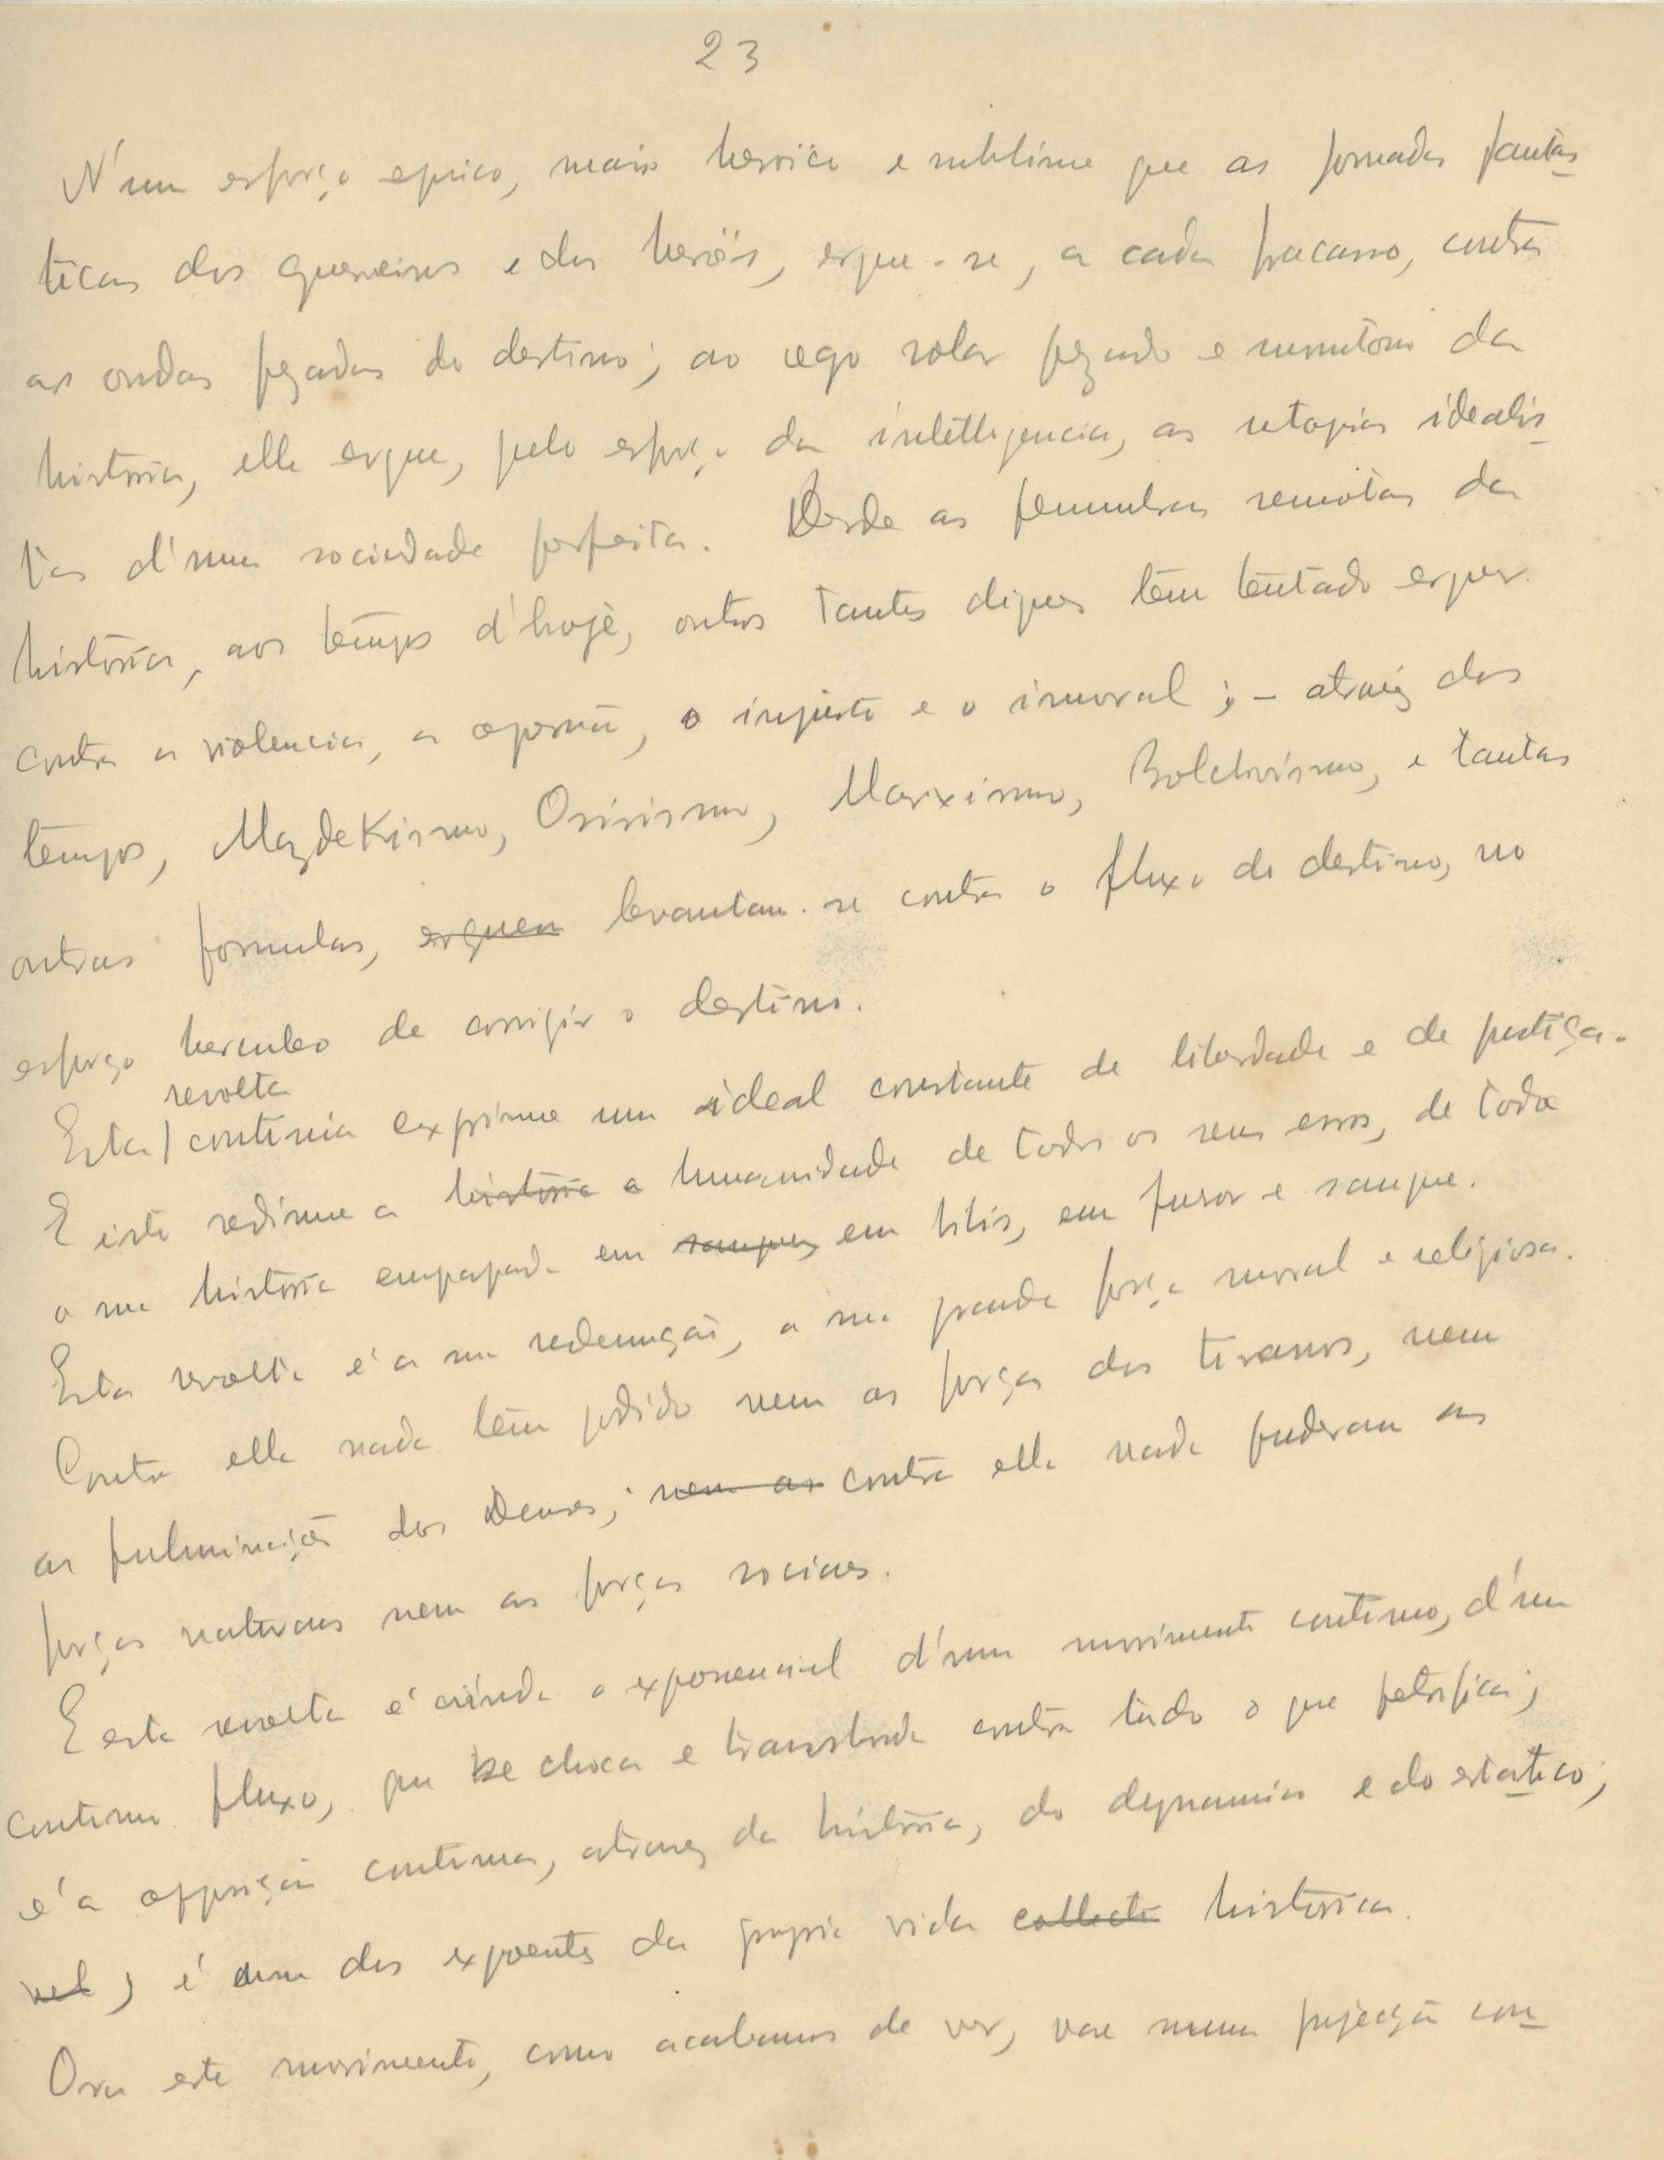 23
N'um esforço epico, mais heroico e sublime que as jornadas fantas-
ticas dos guerreiros e dos heróis, ergue-se, a cada fracasso, contra
as ondas pezadas do destino; ao cego rolar pezado e monotono da
historia, elle ergue, pelo esforço da intelligencia, as utopias idealis-
tas d'uma sociedade perfeita. Desde as penumbras remotas da
historia, aos tempos d'hoje, outros tantos diques têm tentado erguer
contra a violencia, a opressão, o injusto e o imoral; - atravéz dos
tempos, MazdeKismo, Osirismo, Marxismo, Bolchvismo, e tantas
outras formulas, erguem levantam-se contra o fluxo do destino, no
esforço herculeo de corrigir o destino.
revolta
Esta | continua exprime um ideal constante de liberdade e de justiça.
E isto redime a historia a humanidade de todos os seus erros, de toda
a sua historia empapada em sangue, em bilis, em furor e sangue.
Esta revolta é a sua redempção, a sua grande força moral e religiosa.
Contra ella nada têm podido nem as forças dos tiranos, nem
as fulminações dos Deuses; nem as contra ella nada puderam as
forças naturaes nem as forças sociaes.
E esta revolta é ainda o exponencial d'um movimento continuo, d'um
continuo fluxo, que se choca e transborda contra tudo o que petrifica;
é a opposição continua, atravez da historia, do dynamico e do estatico;
vel; é um dos expoentes da propria vida collecti historica.
Ora este movimento, como acabamos de ver, vae numa projecção con-